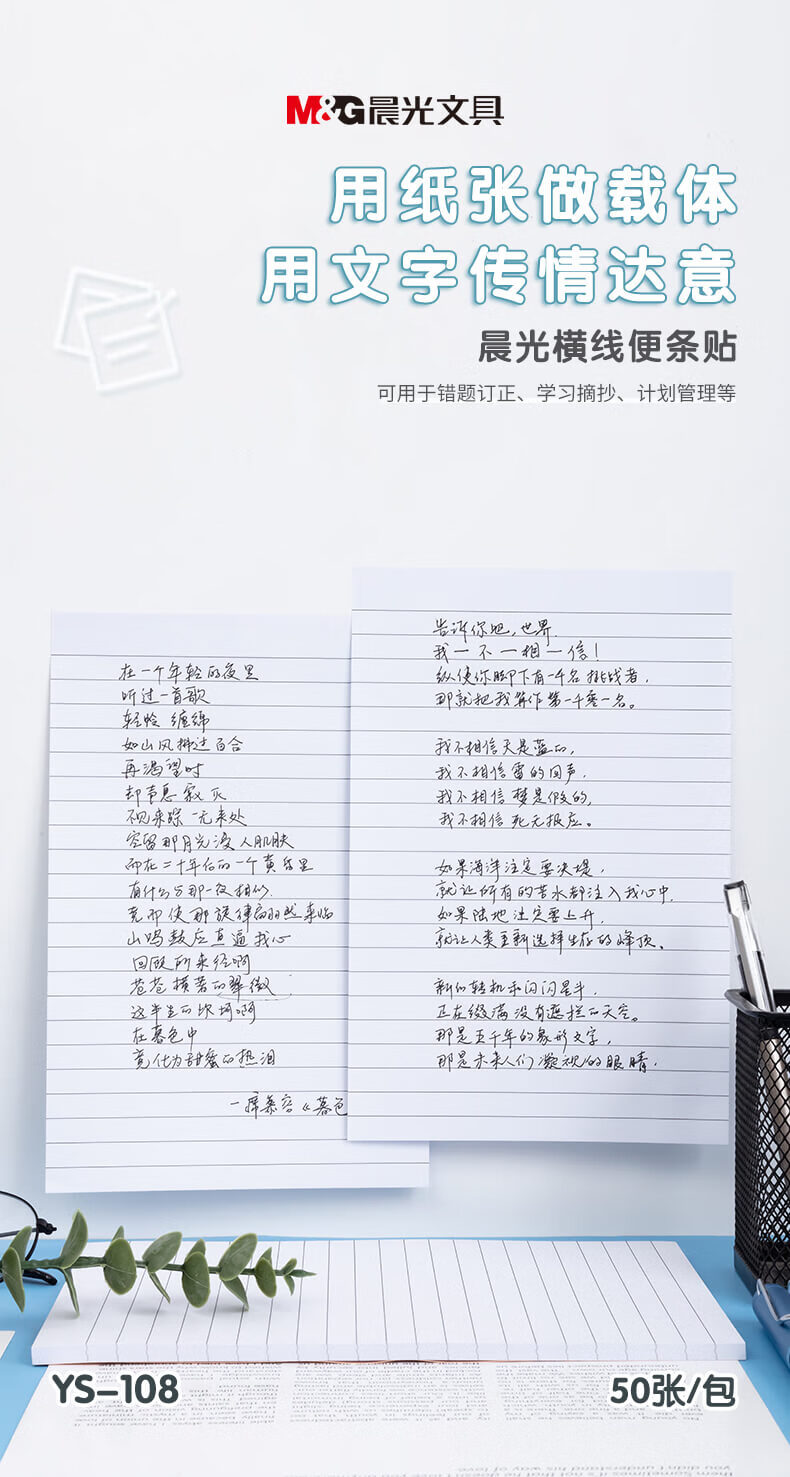 M&G晨光文具
用纸张做载体
用文字传情达意
晨光横线便条贴
可用于错题订正、学习摘抄、计划管理等
在一个年轻的夜里
听过一首歌
轻怜 缠绵
如山风拂过百合
再渴望时
却声息寂灭
不见来踪 无来处
空留那月光浸人肌肤
而在二十年后的一个黄昏里
有什么与那一夜相似
竟而使那旋律翩然来临
山鸣鼓应直逼我心
回顾所来径啊
苍苍横著的翠微
这半生的坎坷啊
在暮色中
竟化为甜蜜的热泪
—席慕容《暮色
告诉你吧,世界
我—不—相—信!
纵使你脚下有一千名挑战者,
那就把我算作第一千零一名。
我不相信天是蓝的,
我不相信雷的回声,
我不相信梦是假的,
我不相信死无报应。
如果海洋注定要决堤,
就让所有的苦水都注入我心中,
如果陆地注定要上升,
就让人类重新选择生存的峰顶。
新的转机和闪闪星斗,
正在缀满没有遮拦的天空。
那是五千年的象形文字,
那是未来人们凝视的眼睛.
YS-108
50张/包